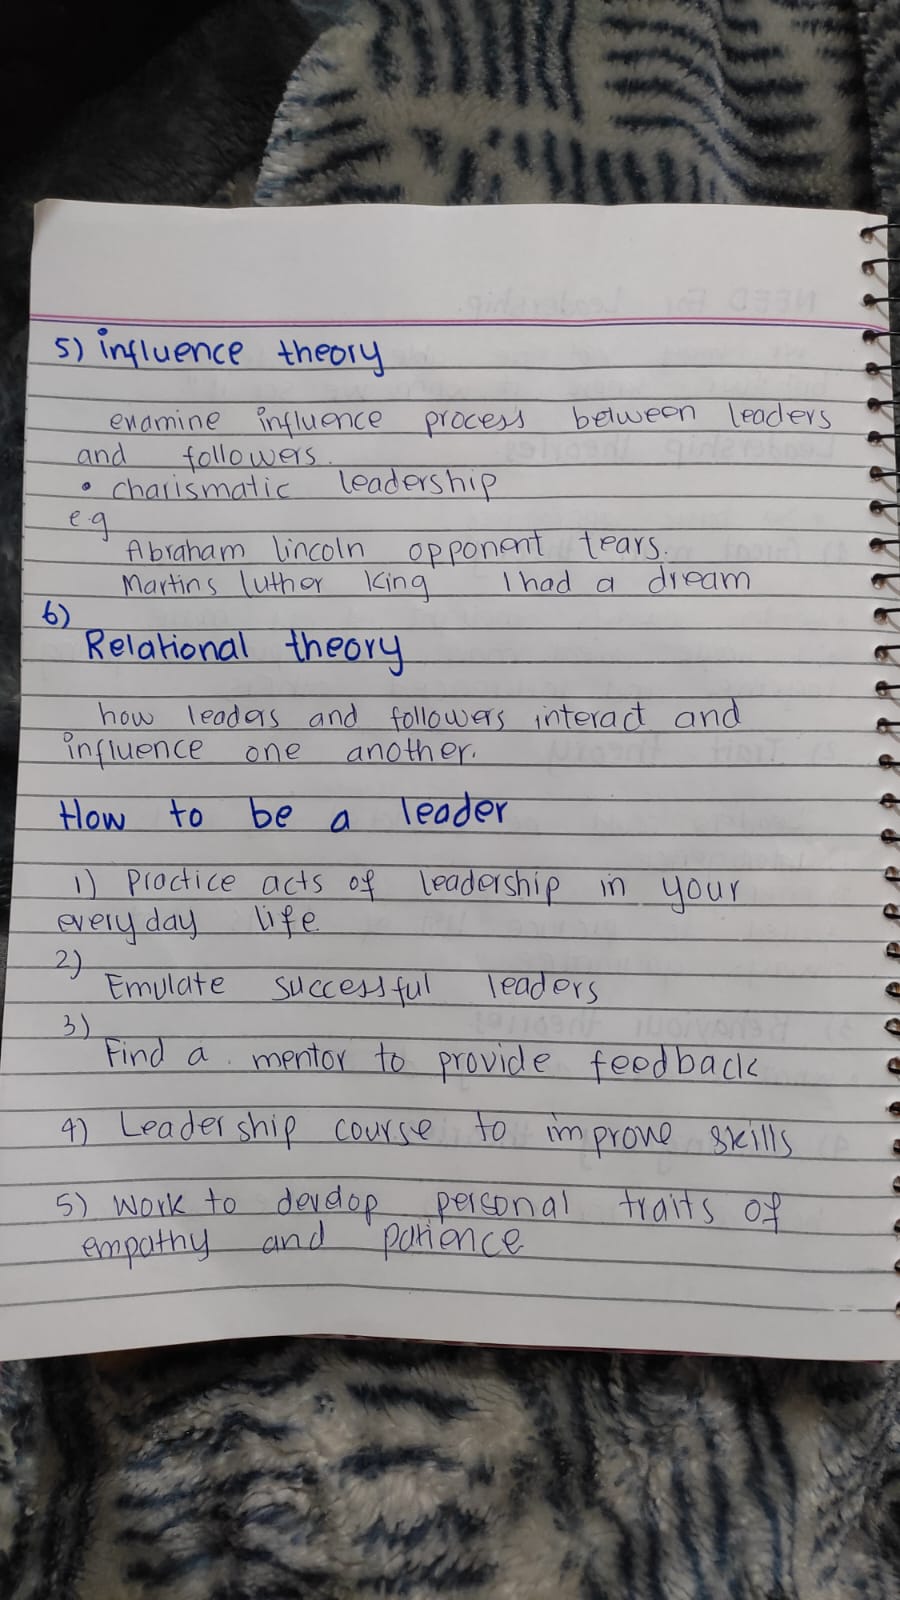 5) influence theory
examine influence process between leaders
and followers.
• charismatic leadership
e.g
Abraham lincoln opponent tears.
Martins luther King I had a dream
6)
Relational theory
how leaders and followers interact and
influence one another.
How to be a leader
1) Practice acts of leadership in your
every day life
2)
Emulate successful leaders
3)
Find a mentor to provide feedback
4) Leadership course to improve skills
5) Work to develop personal traits of
empathy and patience